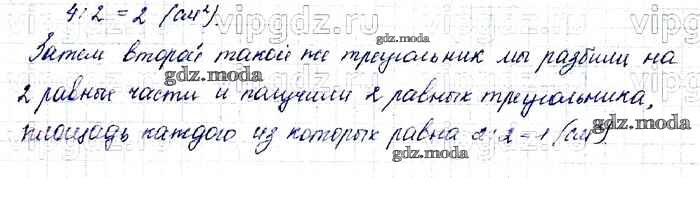 4:2=2 (см²).
Затем второй такой же треугольник мы разбили на
2 равные части и получили 2 равных треугольника,
площадь каждого из которых равна 2:2=1 (см²).
vipgdz.ru
gdz.moda
gdz.moda
gdz.moda
gdz.moda
gdz.moda